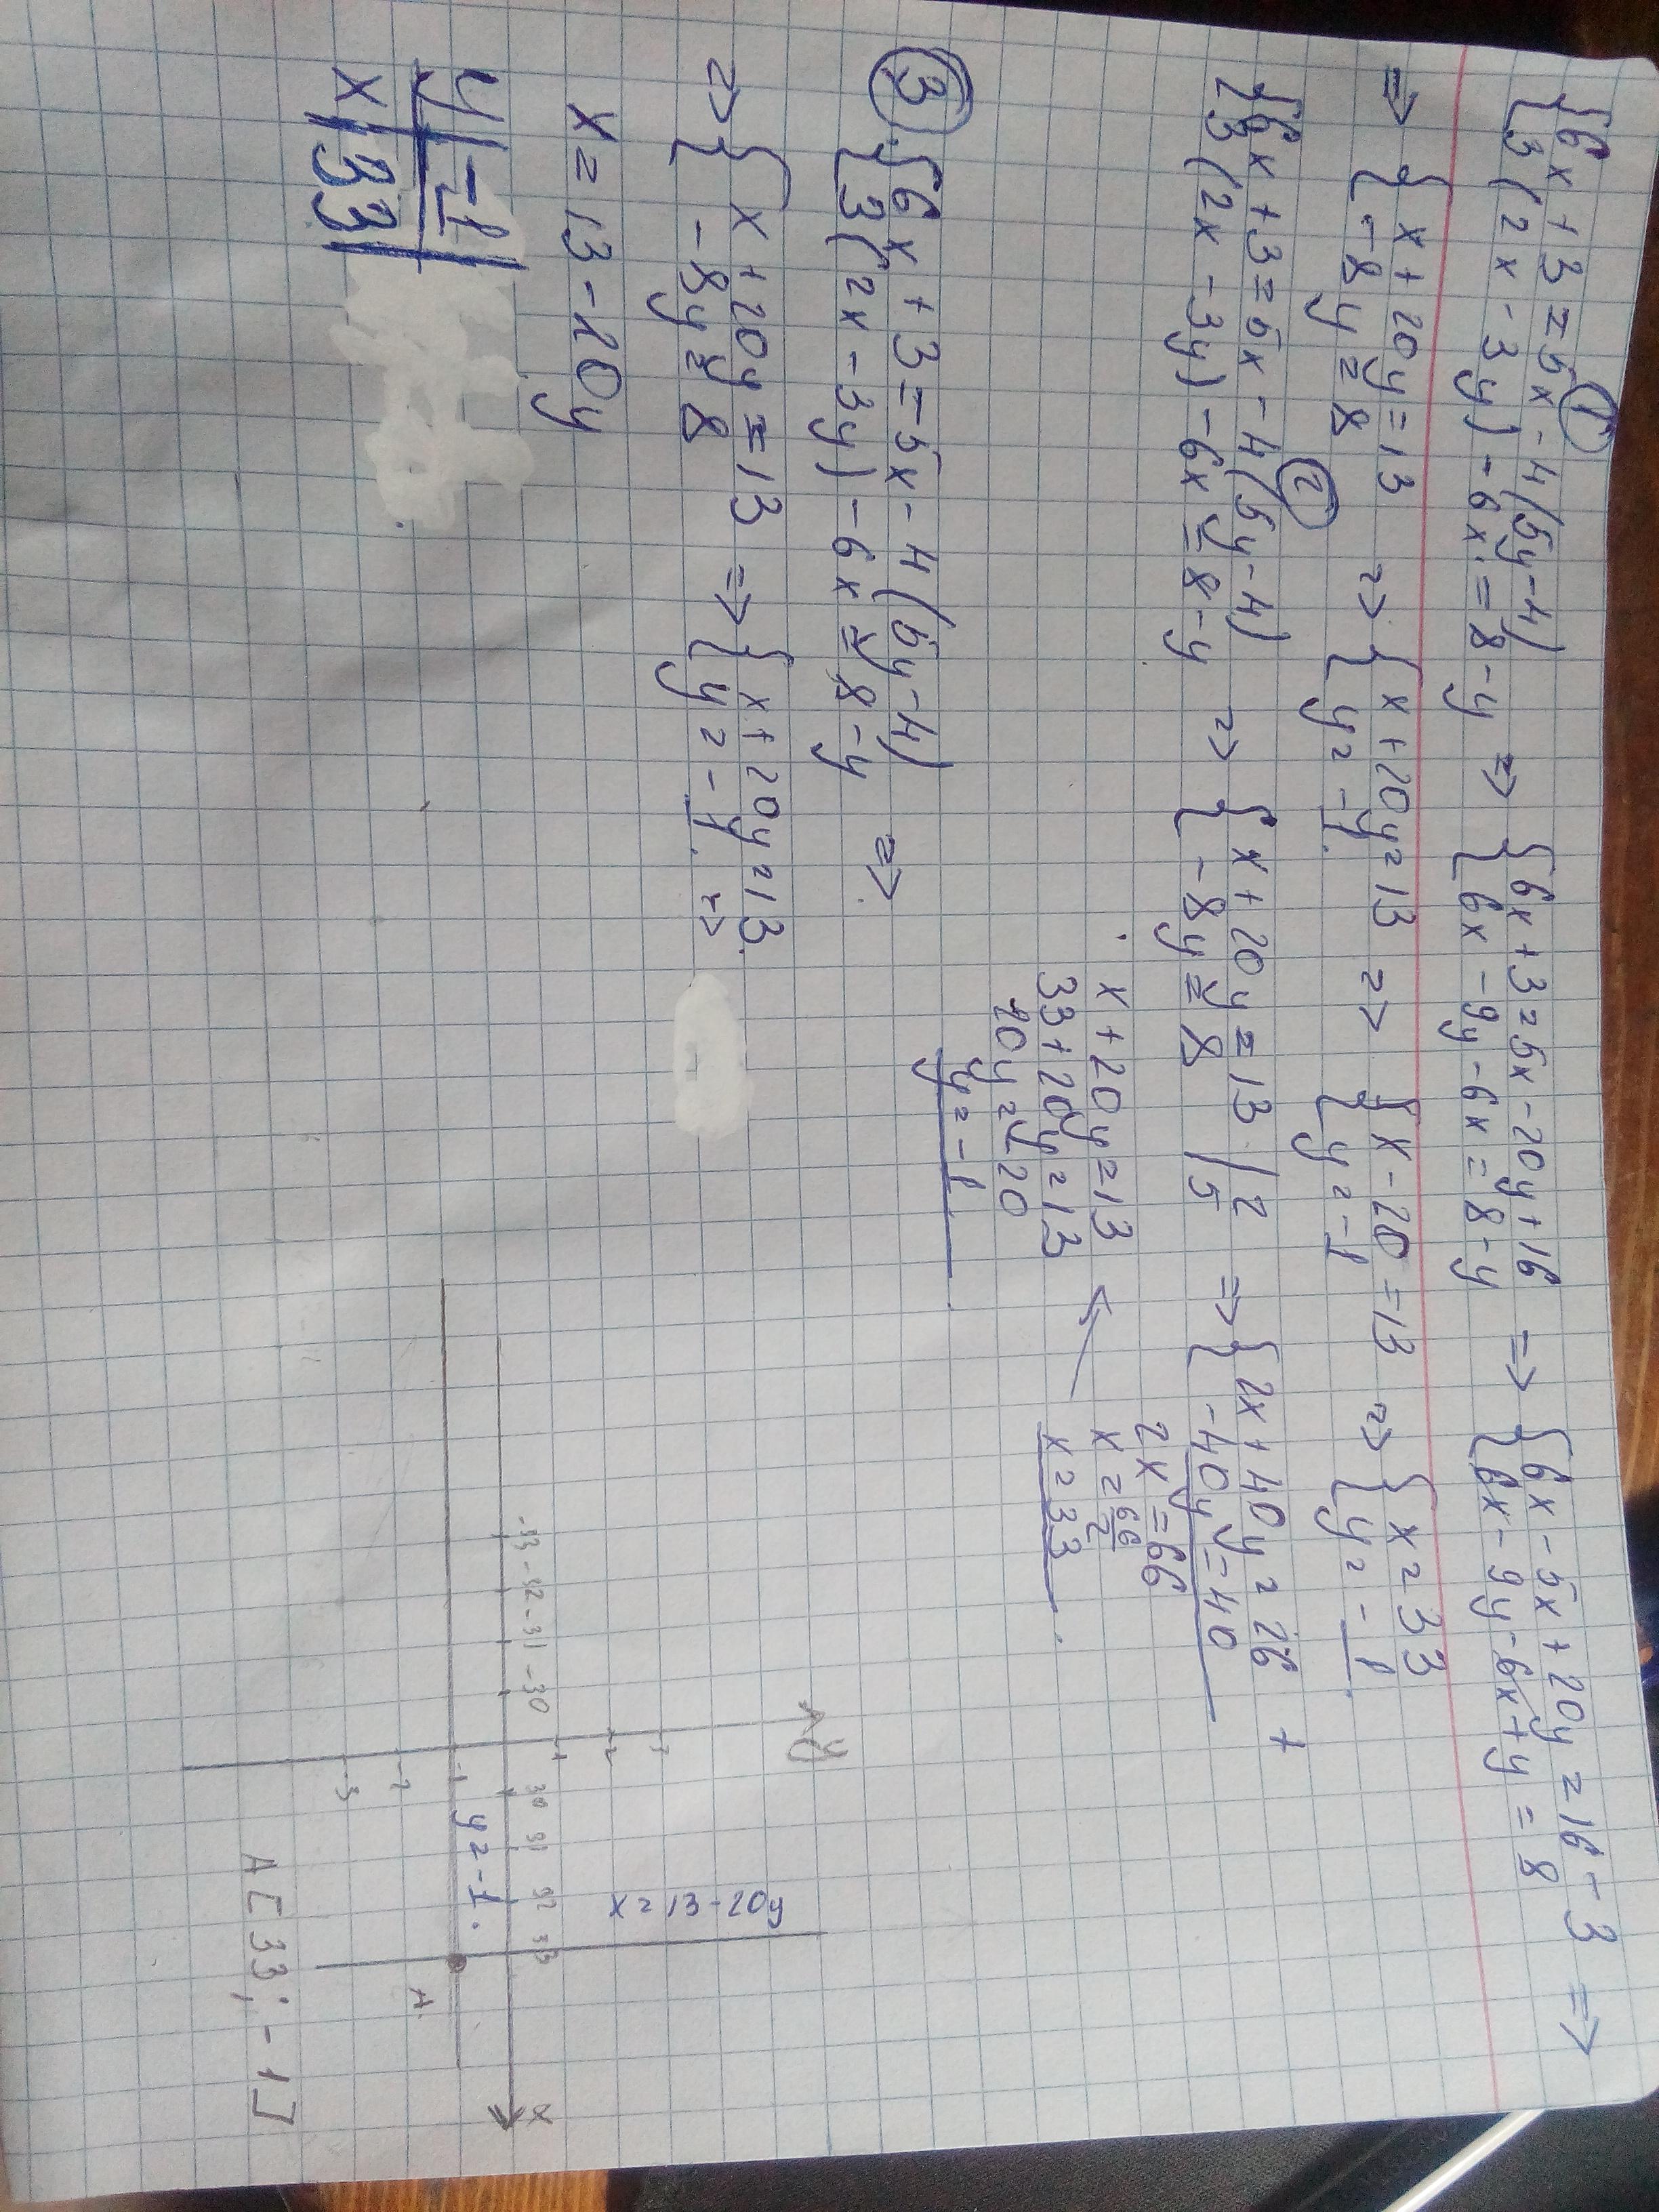 ①
{6x+3=5x-4(5y-4)
{3(2x-3y)-6x=8-y => {6x+3=5x-20y+16
{6x-9y-6x=8-y => {6x-5x+20y=16-3
{6x-9y-6x+y=8 =>
=> {x+20y=13
{-8y=8 => {x+20y=13
{y=-1. => {x-20=13
{y=-1 => {x=33
{y=-1.
②
{6x+3=5x-4(5y-4)
{3(2x-3y)-6x=8-y => {x+20y=13 /2
{-8y=8 /5 => {2x+40y=26 +
{-40y=40
2x=66
x=66/2
x=33.
x+20y=13
33+20y=13
20y=-20
y=-1
③. {6x+3=5x-4(5y-4)
{3(2x-3y)-6x=8-y =>
=> {x+20y=13
{-8y=8 => {x+20y=13.
{y=-1. =>
x=13-20y
y|-1|
x|33|
y
3
2
1
-33 -32 -31 -30 30 31 32 33 x
-1
-2
-3
y=-1.
x=13-20y
A
A[33;-1]